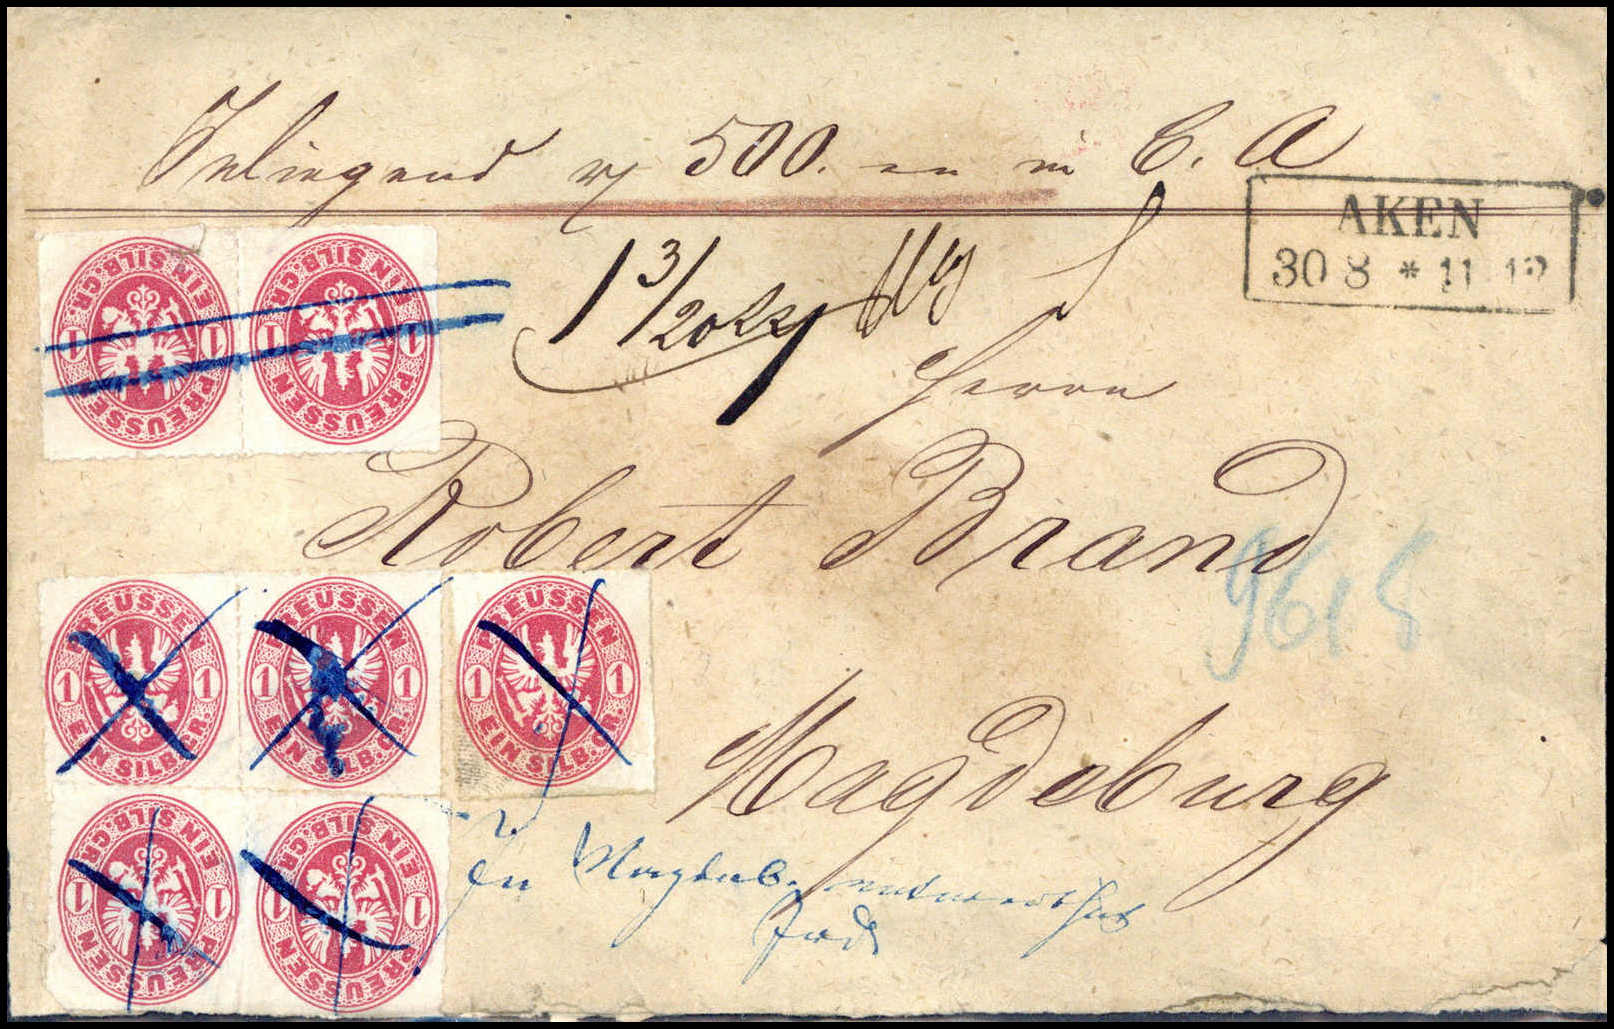 Inliegend rf 500. en in C. A
AKEN
30 8 * 11 12
1 3/20
Herrn
Robert Brand
9615
Magdeburg
In Magdeb.
PREUSSEN 1 EIN SILB.GR. 1
PREUSSEN 1 EIN SILB.GR. 1
PREUSSEN 1 EIN SILB.GR. 1
PREUSSEN 1 EIN SILB.GR. 1
PREUSSEN 1 EIN SILB.GR. 1
PREUSSEN 1 EIN SILB.GR. 1
PREUSSEN 1 EIN SILB.GR. 1